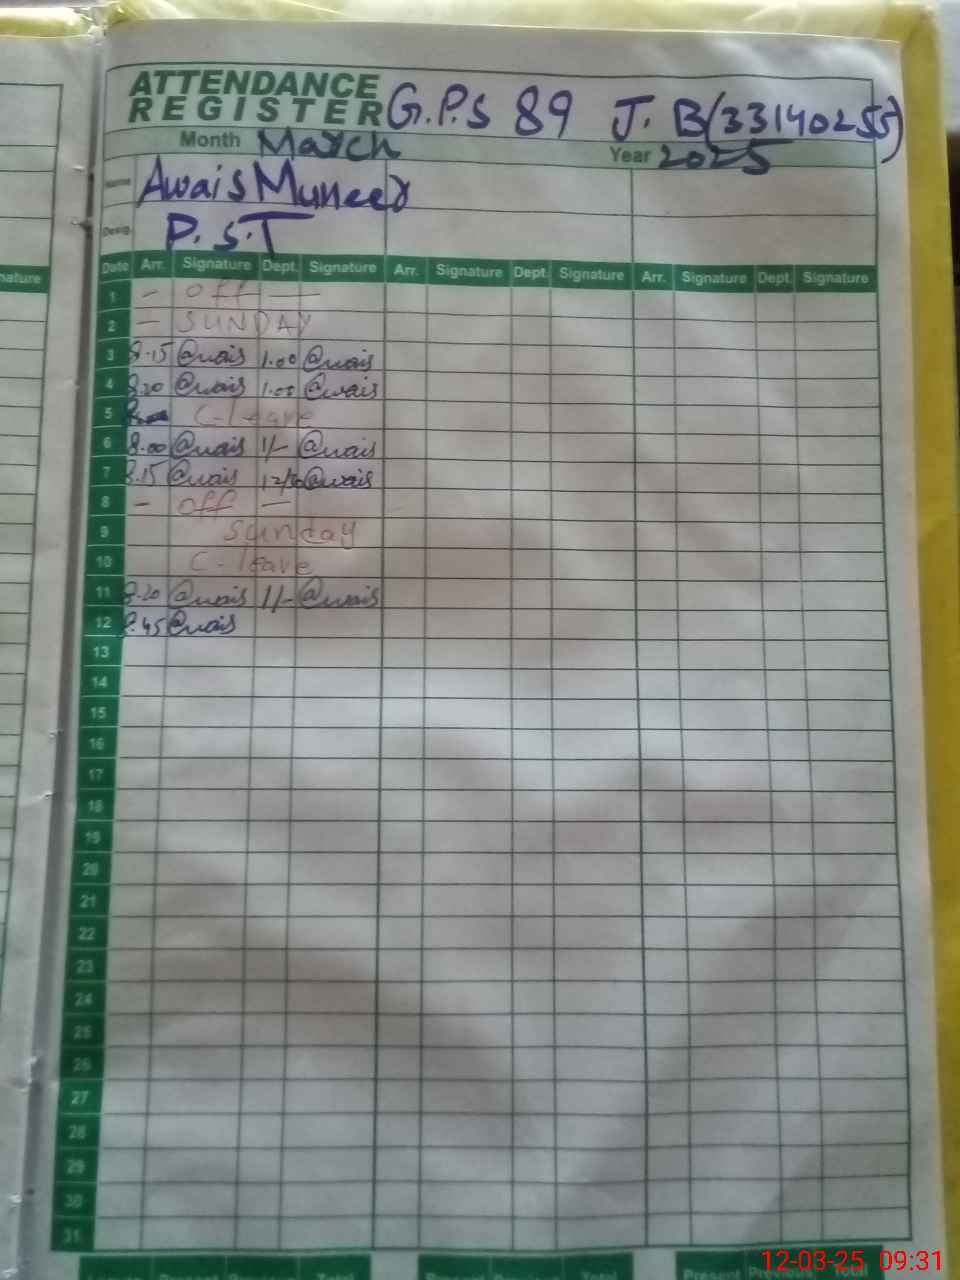 ATTENDANCE
REGISTER G.P.S 89 J. B(33140255)
Month March Year 2025
Name Awais Muneer
Desig. P.S.T
nature Date Arr. Signature Dept. Signature Arr. Signature Dept. Signature Arr. Signature Dept. Signature
1 - off —
2 - SUNDAY
3 8.15 Awais 1.00 Awais
4 8.20 Awais 1.00 Awais
5 C-leave
6 8.00 Awais 1/- Awais
7 8.15 Awais 12/30 Awais
8 - off —
9 sunday
10 C-leave
11 8.20 Awais 1/- Awais
12 8.45 Awais
13
14
15
16
17
18
19
20
21
22
23
24
25
26
27
28
29
30
31
Total Total Present Previous Total
12-03-25 09:31